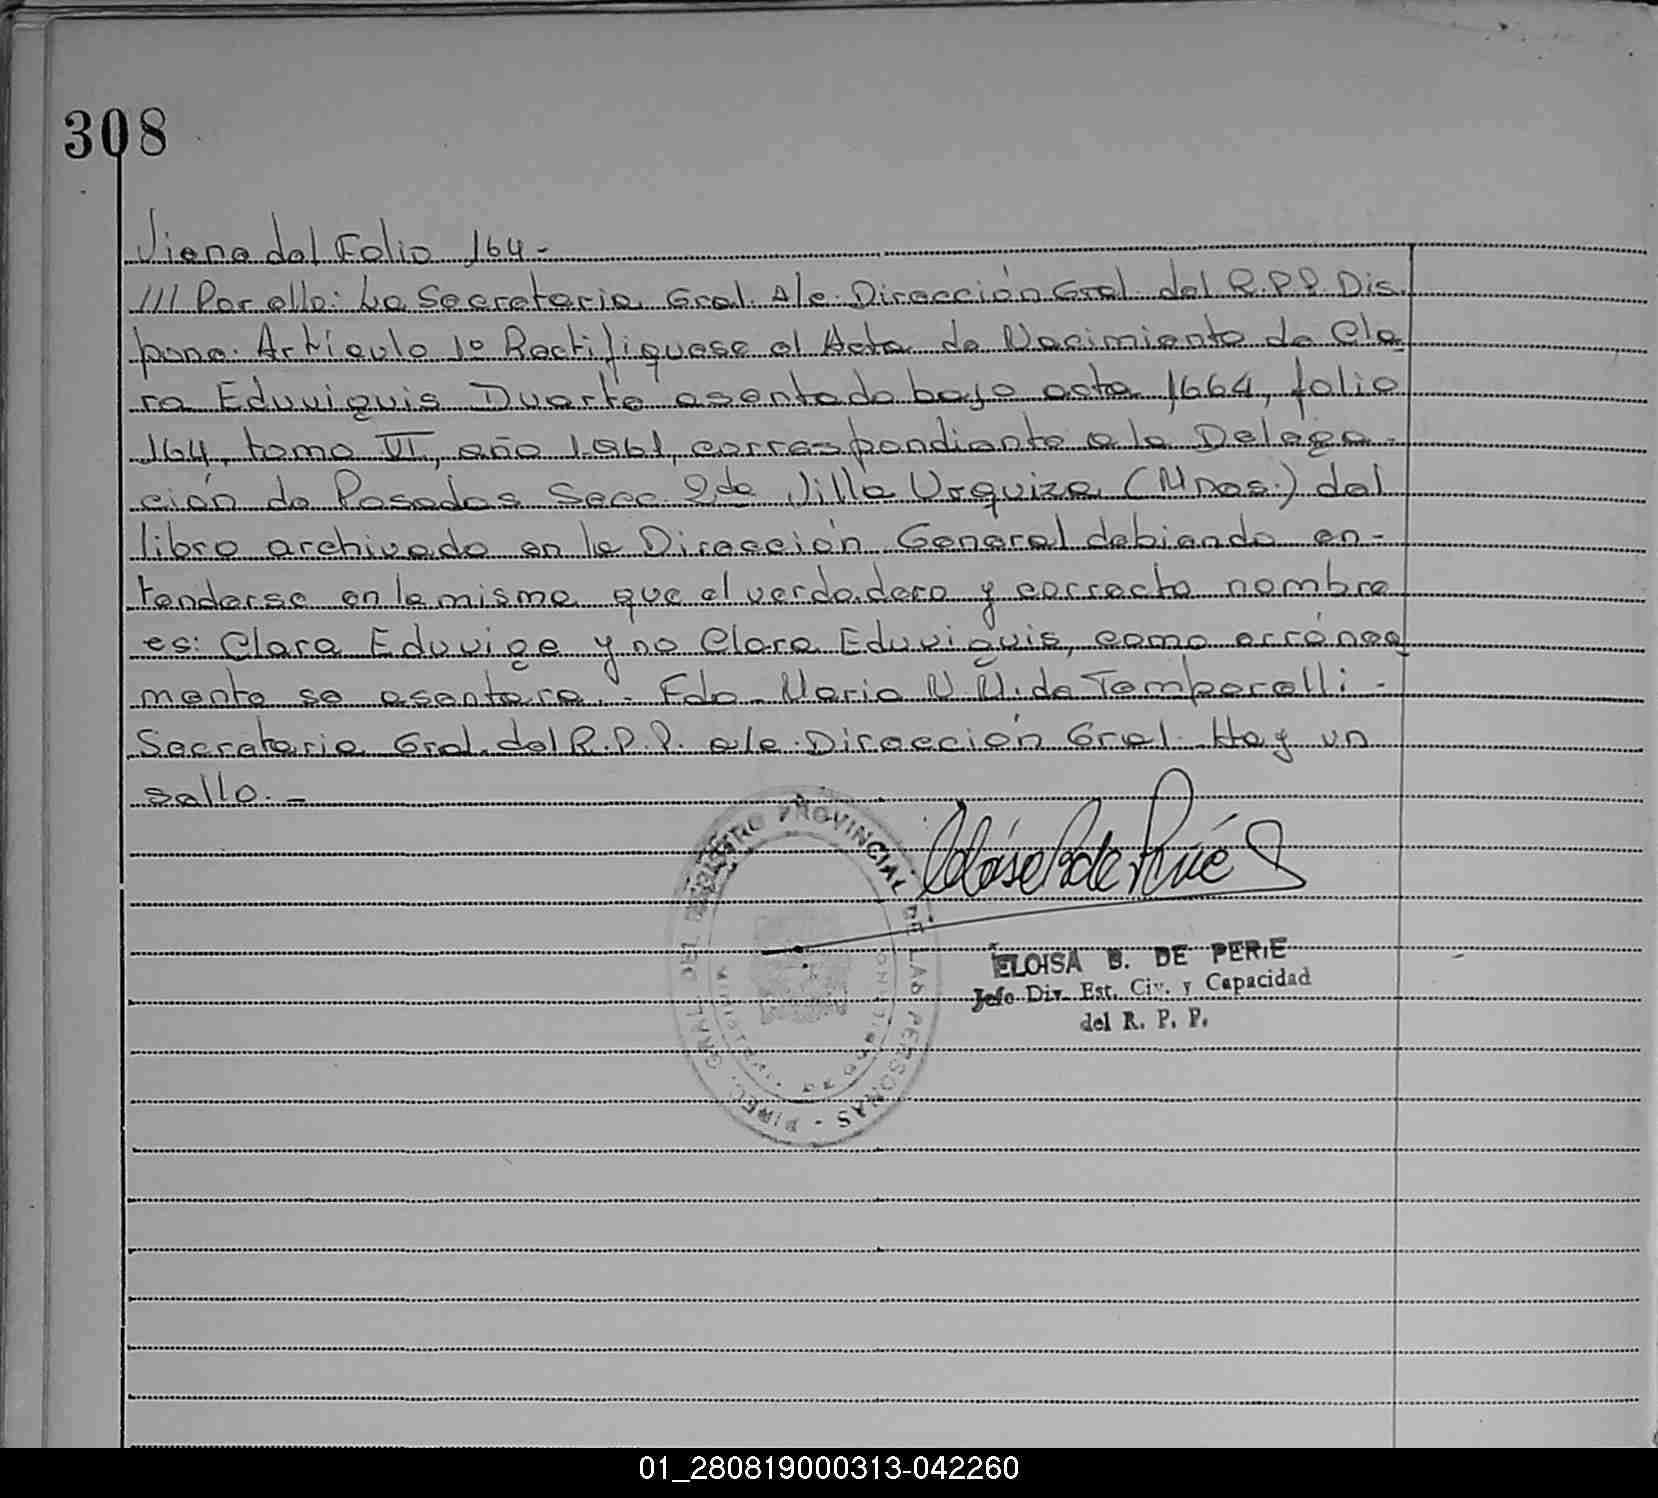 308
Viene del Folio 164-
/// Por ello: La Secretaria Gral. A/c. Dirección Gral. del R.P.P. Dis-
pone. Artículo 1º Rectifíquese el Acta de Nacimiento de Cla-
ra Eduviguis Duarte asentada bajo acta 1664, folio
164, tomo VI, año 1.961, correspondiente a la Delega-
ción de Posadas Secc. 2da Villa Urquiza (Mnes.) del
libro archivado en la Dirección General debiendo en-
tenderse en la misma que el verdadero y correcto nombre
es: Clara Eduvige y no Clara Eduviguis, como errónea
mente se asentara.- Fdo- Maria N. N. de Temporelli -
Secretaria Gral. del R.P.P. a/c. Dirección Gral. Hay un
sello.-
REGISTRO PROVINCIAL DE LAS PERSONAS - DIREC. GRAL. DEL
ELOISA B. DE PERIE
Jefe Div. Est. Civ. y Capacidad
del R. P. P.
01_280819000313-042260